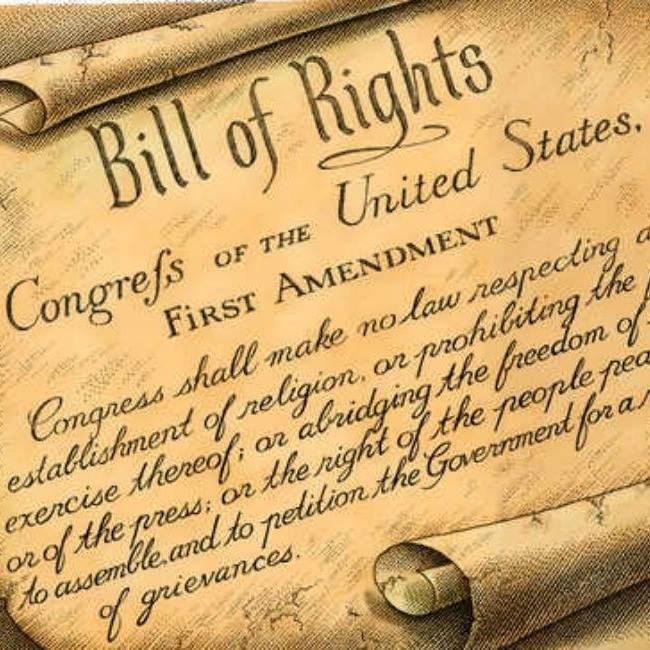 Bill of Rights
Congreſs OF THE United States,
FIRST AMENDMENT
Congress shall make no law respecting
establishment of religion, or prohibiting the
exercise thereof; or abridging the freedom of
or of the press; or the right of the people
to assemble, and to petition the Government for a
of grievances.